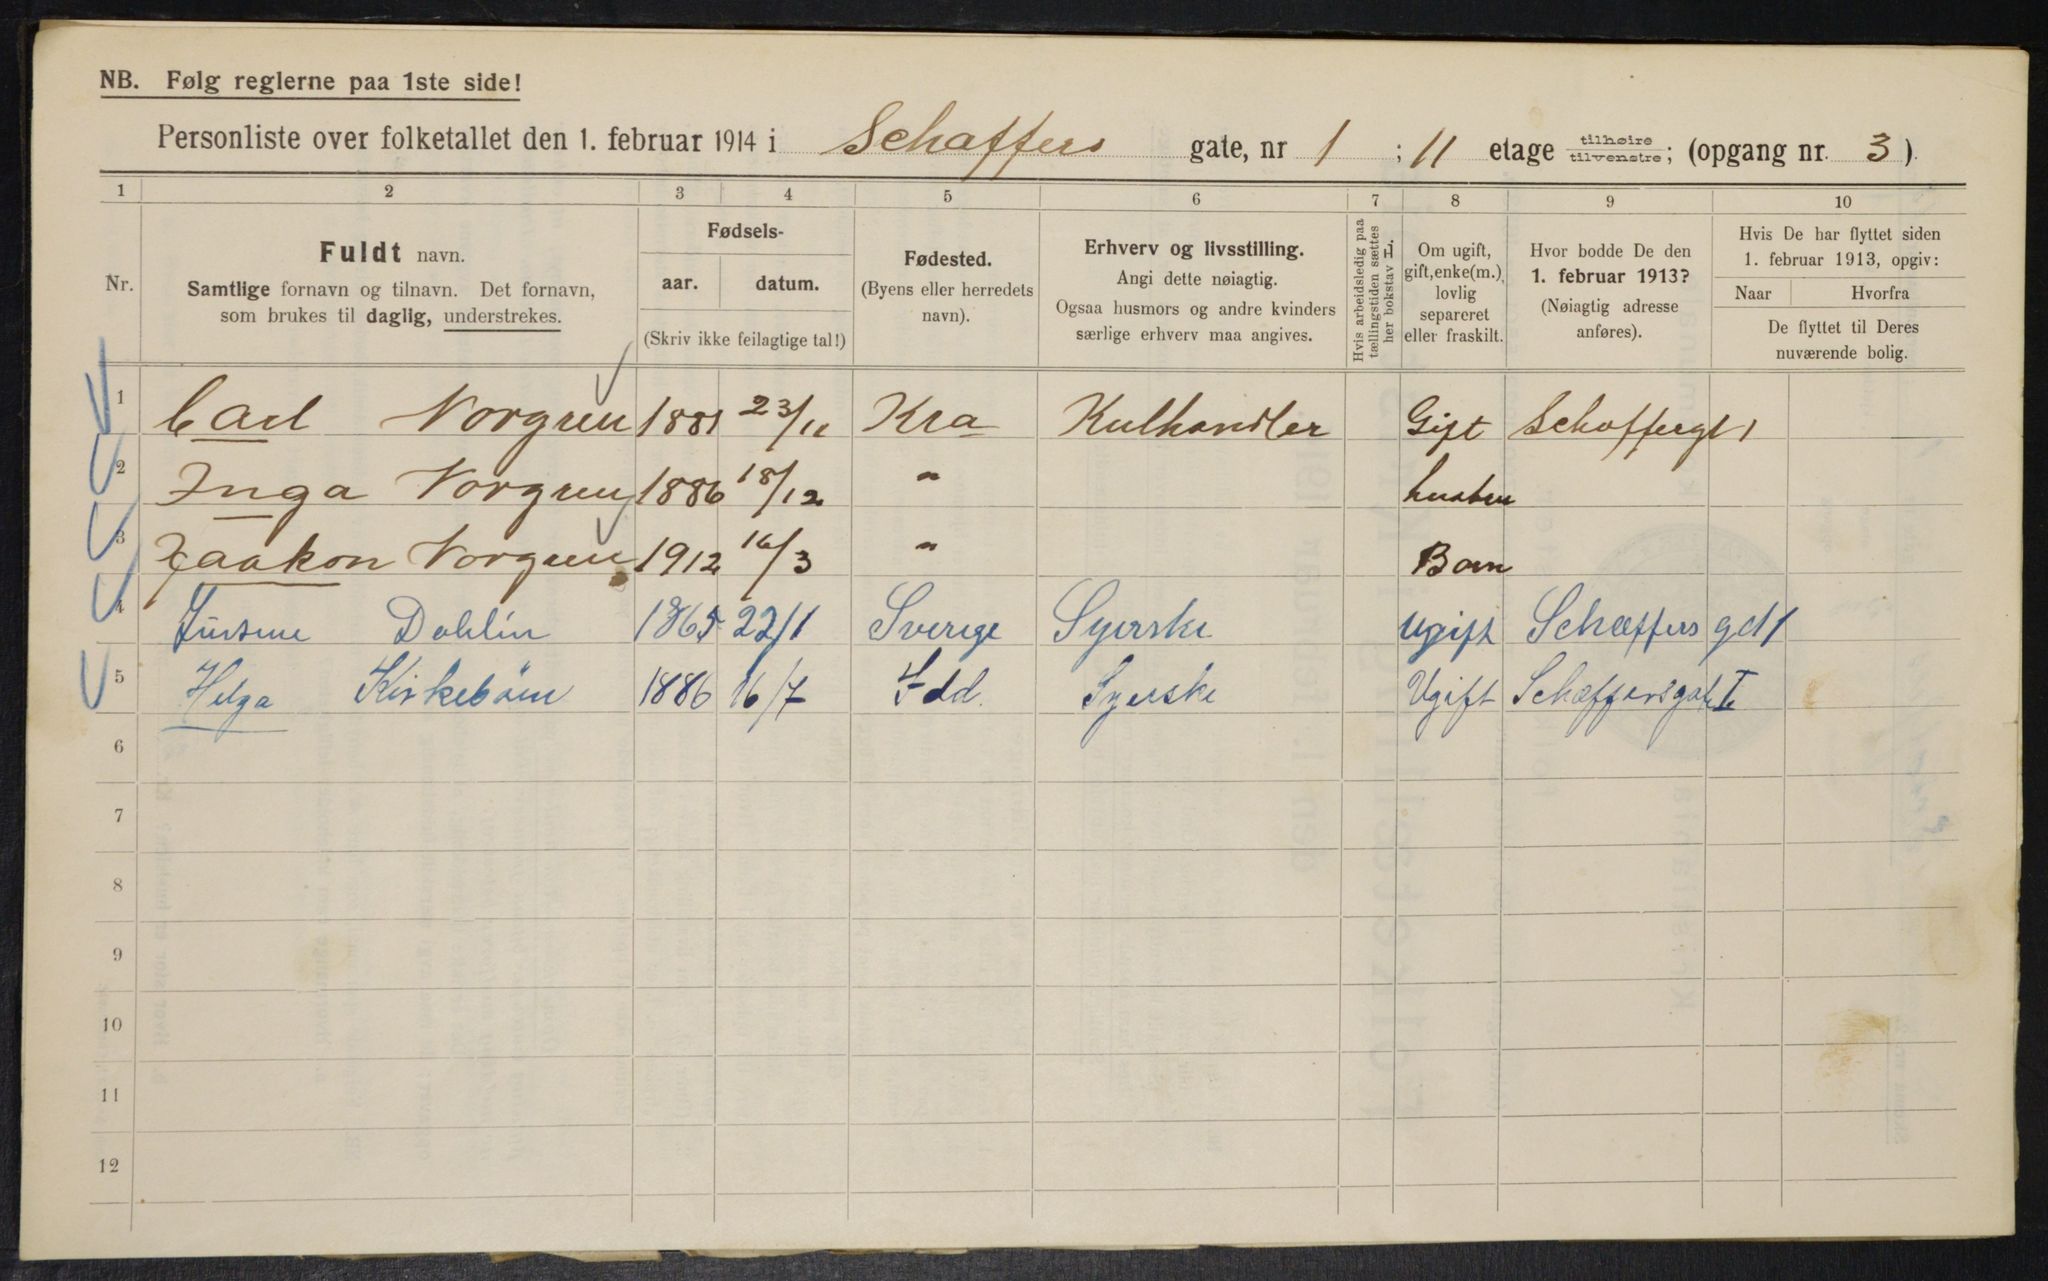 NB. Følg reglerne paa 1ste side!
Personliste over folketallet den 1. februar 1914 i Schaffers gate, nr 1 ; 11 etage tilhøire tilvenstre; (opgang nr. 3)
1 2 3 4 5 6 7 8 9 10
Nr.
Fuldt navn.
Samtlige fornavn og tilnavn. Det fornavn,
som brukes til daglig, understrekes.
Fødsels-
aar. datum.
(Skriv ikke feilagtige tal!)
Fødested.
(Byens eller herredets
navn).
Erhverv og livsstilling.
Angi dette nøiagtig.
Ogsaa husmors og andre kvinders
særlige erhverv maa angives.
Hvis arbeidsledig paa
tællingstiden sættes
her bokstav L.
Om ugift,
gift, enke(m.),
lovlig
separeret
eller fraskilt.
Hvor bodde De den
1. februar 1913?
(Nøiagtig adresse
anføres).
Hvis De har flyttet siden
1. februar 1913, opgiv:
Naar Hvorfra
De flyttet til Deres
nuværende bolig.
1 Carl Norgren 1881 23/11 Kra Kulhandler Gift Schaffergt 1
2 Inga Norgren 1886 18/12 " 
3 Haakon Norgren 1912 16/3 " Barn
4 Dahlin 1865 22/1 Sverige Syerske ugift Schæffers gd 1
5 Helga Kirkebøen 1886 16/7 Idd. Syerske Ugift Schæffersgate I
6
7
8
9
10
11
12